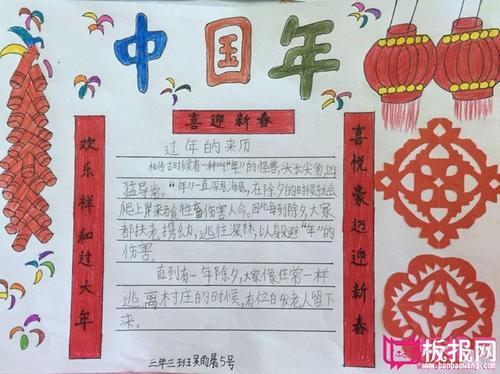 中国年
喜迎新春
欢乐祥和过大年
喜悦豪迈迎新春
过年的来历
相传古时候有一种叫"年"的怪兽,头长尖角,凶
猛异常。"年"一直深居海底,在除夕的时候
爬上岸来吞食牲畜伤害人命。因此每到除夕,大家
都扶老携幼,逃往深林,以躲避"年"的
伤害。
直到有一年除夕,大家像往常一样
逃离村庄的时候,有位白发老人留下
来。
三年三班吴雨晨5号
板报网
www.banbaowang.com